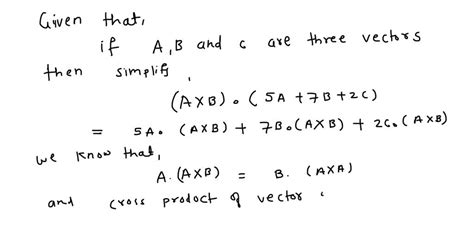 Given that,
if A,B and c are three vectors
then simplify,
(A×B)∘(5A+7B+2C)
= 5A∘(A×B)+7B∘(A×B)+2C∘(A×B)
we know that,
A.(A×B) = B.(A×A)
and cross product of vector